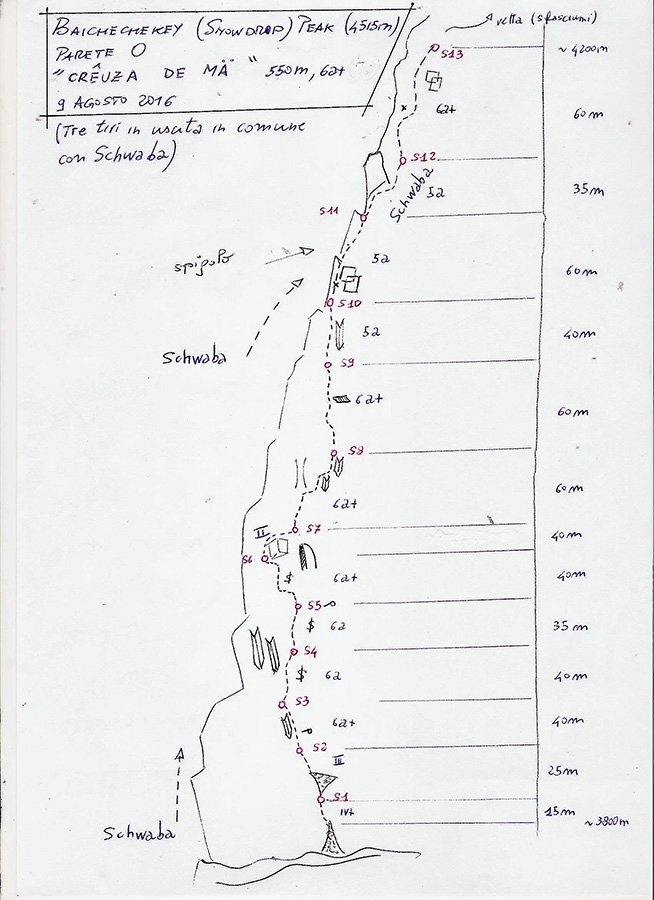 BAICHECHEKEY (SNOWDROP) PEAK (4515m)
PARETE O
"CRÊUZA DE MÄ" 550m, 6a+
9 AGOSTO 2016
(Tre tiri in uscita in comune
con Schwaba)
vetta (sfasciumi)
S13
~ 4200m
6a+
60m
S12
Schwaba
5a
35m
S11
spigolo
5a
60m
S10
Schwaba
5a
40m
S9
6a+
60m
S8
6a+
60m
S7
II
40m
S6
6a+
40m
S5
6a
35m
S4
6a
40m
S3
6a+
40m
S2
III
25m
S1
IV+
15m
~ 3800m
Schwaba